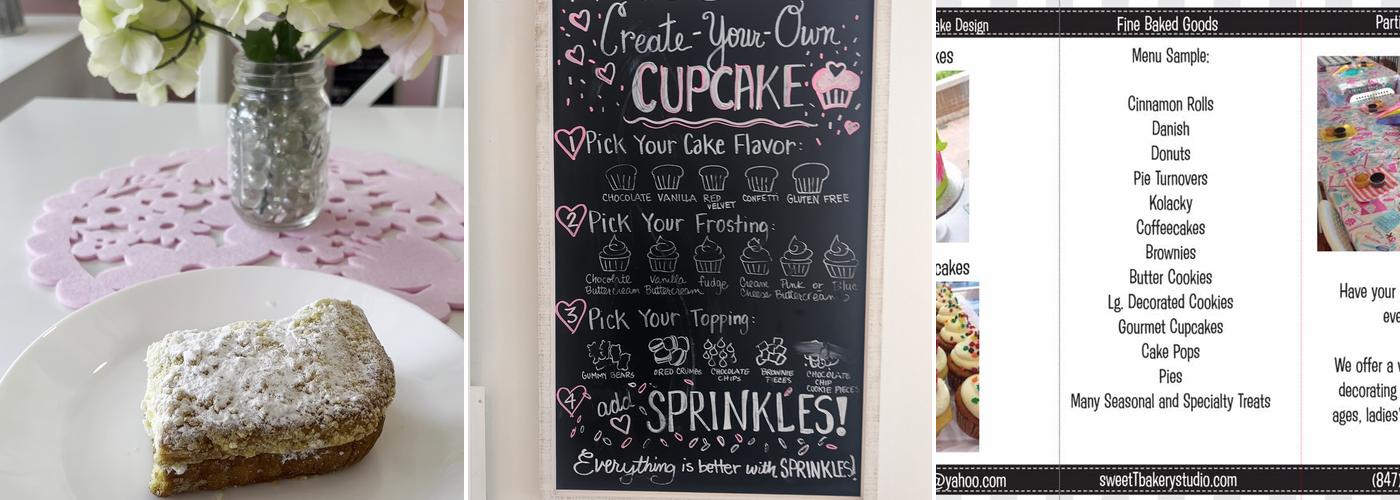 Create-Your-Own
CUPCAKE
1 Pick Your Cake Flavor:
CHOCOLATE VANILLA RED VELVET CONFETTI GLUTEN FREE
2 Pick Your Frosting:
Chocolate Buttercream Vanilla Buttercream fudge Cream Cheese Pink or Blue Buttercream
3 Pick Your Topping:
GUMMY BEARS OREO CRUMBS CHOCOLATE CHIPS BROWNIE PIECES CHOCOLATE CHIP COOKIE PIECES
4 add SPRINKLES!
Everything is better with SPRINKLES!
ake Design
kes
cakes
@yahoo.com
Fine Baked Goods
Menu Sample:
Cinnamon Rolls
Danish
Donuts
Pie Turnovers
Kolacky
Coffeecakes
Brownies
Butter Cookies
Lg. Decorated Cookies
Gourmet Cupcakes
Cake Pops
Pies
Many Seasonal and Specialty Treats
sweetTbakerystudio.com
Part
Have your
eve
We offer a
decorating
ages, ladies'
(847